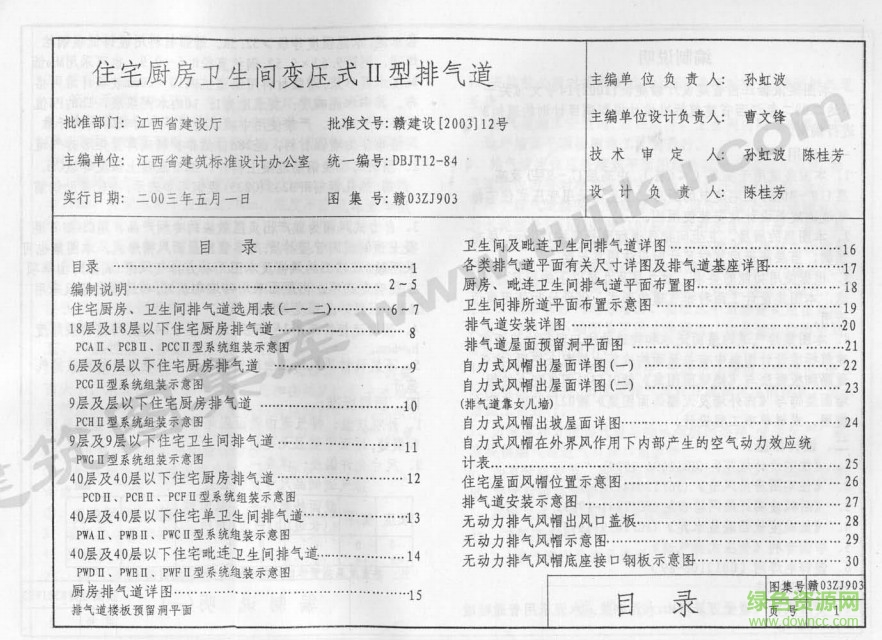 住宅厨房卫生间变压式II型排气道
批准部门：江西省建设厅 批准文号：赣建设[2003]12号
主编单位：江西省建筑标准设计办公室 统一编号：DBJT12-84
实行日期：二00三年五月一日 图集号：赣03ZJ903
主编单位负责人：孙虹波
主编单位设计负责人：曹文锋
技术审定人：孙虹波 陈桂芳
设计负责人：陈桂芳
目录
目录……1
编制说明……2~5
住宅厨房、卫生间排气道选用表(一~二)……6~7
18层及18层以下住宅厨房排气道……8
PCAII、PCBII、PCCII型系统组装示意图
6层及6层以下住宅厨房排气道……9
PCGII型系统组装示意图
9层及层以下住宅厨房排气道……10
PCHII型系统组装示意图
9层及9层以下住宅卫生间排气道……11
PWGII型系统组装示意图
40层及40层以下住宅厨房排气道……12
PCDII、PCEII、PCFII型系统组装示意图
40层及40层以下住宅单卫生间排气道……13
PWAII、PWBII、PWCII型系统组装示意图
40层及40层以下住宅毗连卫生间排气道……14
PWDII、PWEII、PWFII型系统组装示意图
厨房排气道详图……15
排气道楼板预留洞平面
卫生间及毗连卫生间排气道详图……16
各类排气道平面有关尺寸详图及排气道基座详图……17
厨房、毗连卫生间排气道平面布置图……18
卫生间排所道平面布置示意图……19
排气道安装详图……20
排气道屋面预留洞平面图……21
自力式风帽出屋面详图(一)……22
自力式风帽出屋面详图(二)……23
(排气道靠女儿墙)
自力式风帽出坡屋面详图……24
自力式风帽在外界风作用下内部产生的空气动力效应统
计表……25
住宅屋面风帽位置示意图……26
排气道安装示意图……27
无动力排气风帽出风口盖板……28
无动力排气风帽示意图……29
无动力排气风帽底座接口钢板示意图……30
目录
图集号 赣03ZJ903
页号 1
建筑图集库 www.tujiku.com
绿色资源网
www.downcc.com